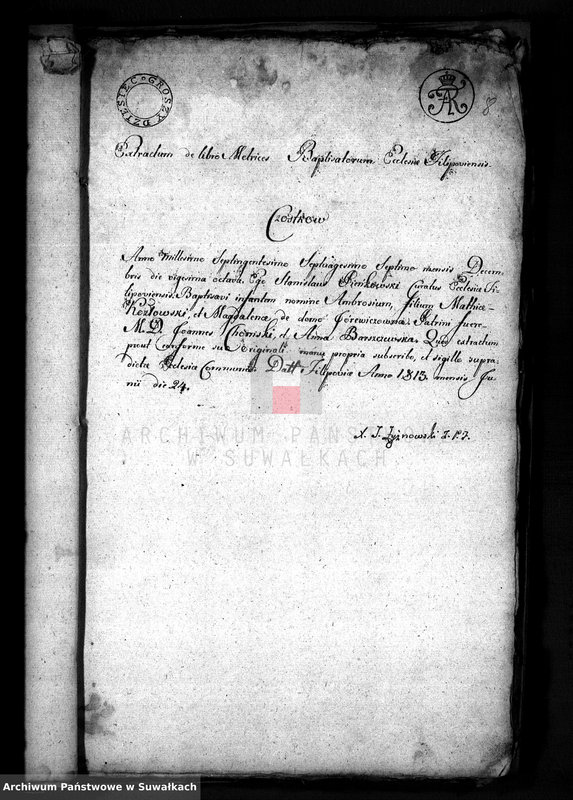 DZIESIEC GROSZY
8
Extractum de libro Metrices Baptisatorum Ecclesiæ Filipoviensis
Czostkow
Anno Millesimo Septingentesimo Septuagesimo Septimo mensis Decem-
bris die vigesima octava Ego Stanislaus Pienkowski Curatus Ecclesiæ Fi-
lipoviensis Baptisavi infantem nomine Ambrosium, filium Mathiæ
Kozłowski, et Magdalenæ de domo Jorewiczowna Patrini fuer-
M. D. Joannes Chomiski, et Anna Barszowska. Quod extractum
prout conforme suo Originali manu propria subscribo, et sigillo supra
dictæ Eclesiæ Communio Datt Filipoviæ Anno 1813. mensis Ju-
nii die 24.
X. J. Zyznowski
ARCHIWUM PAŃSTWOWE
W SUWAŁKACH
Archiwum Państwowe w Suwałkach